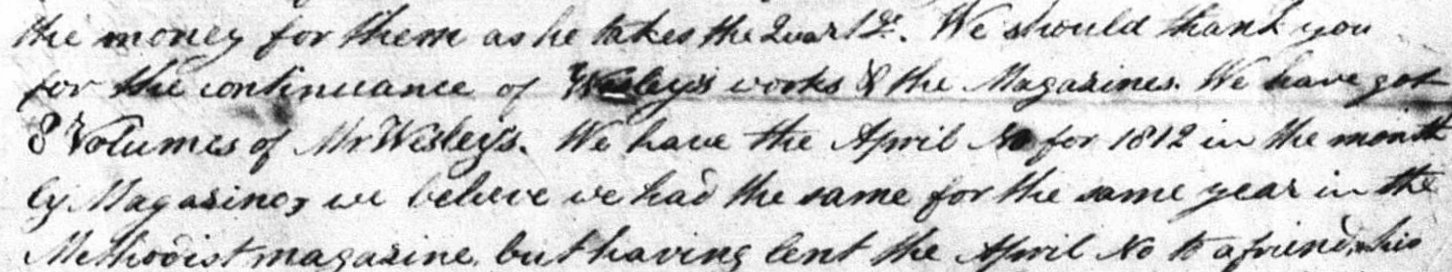 the money for them as he takes the We should thank you
for the continuance of Wesley's works & the Magazines. We have got
8 Volumes of Mr Wesley's. We have the April No for 1812 in the month
ly Magazine, we believe we had the same for the same year in the
Methodist magazine, but having lent the April No to a friend, his